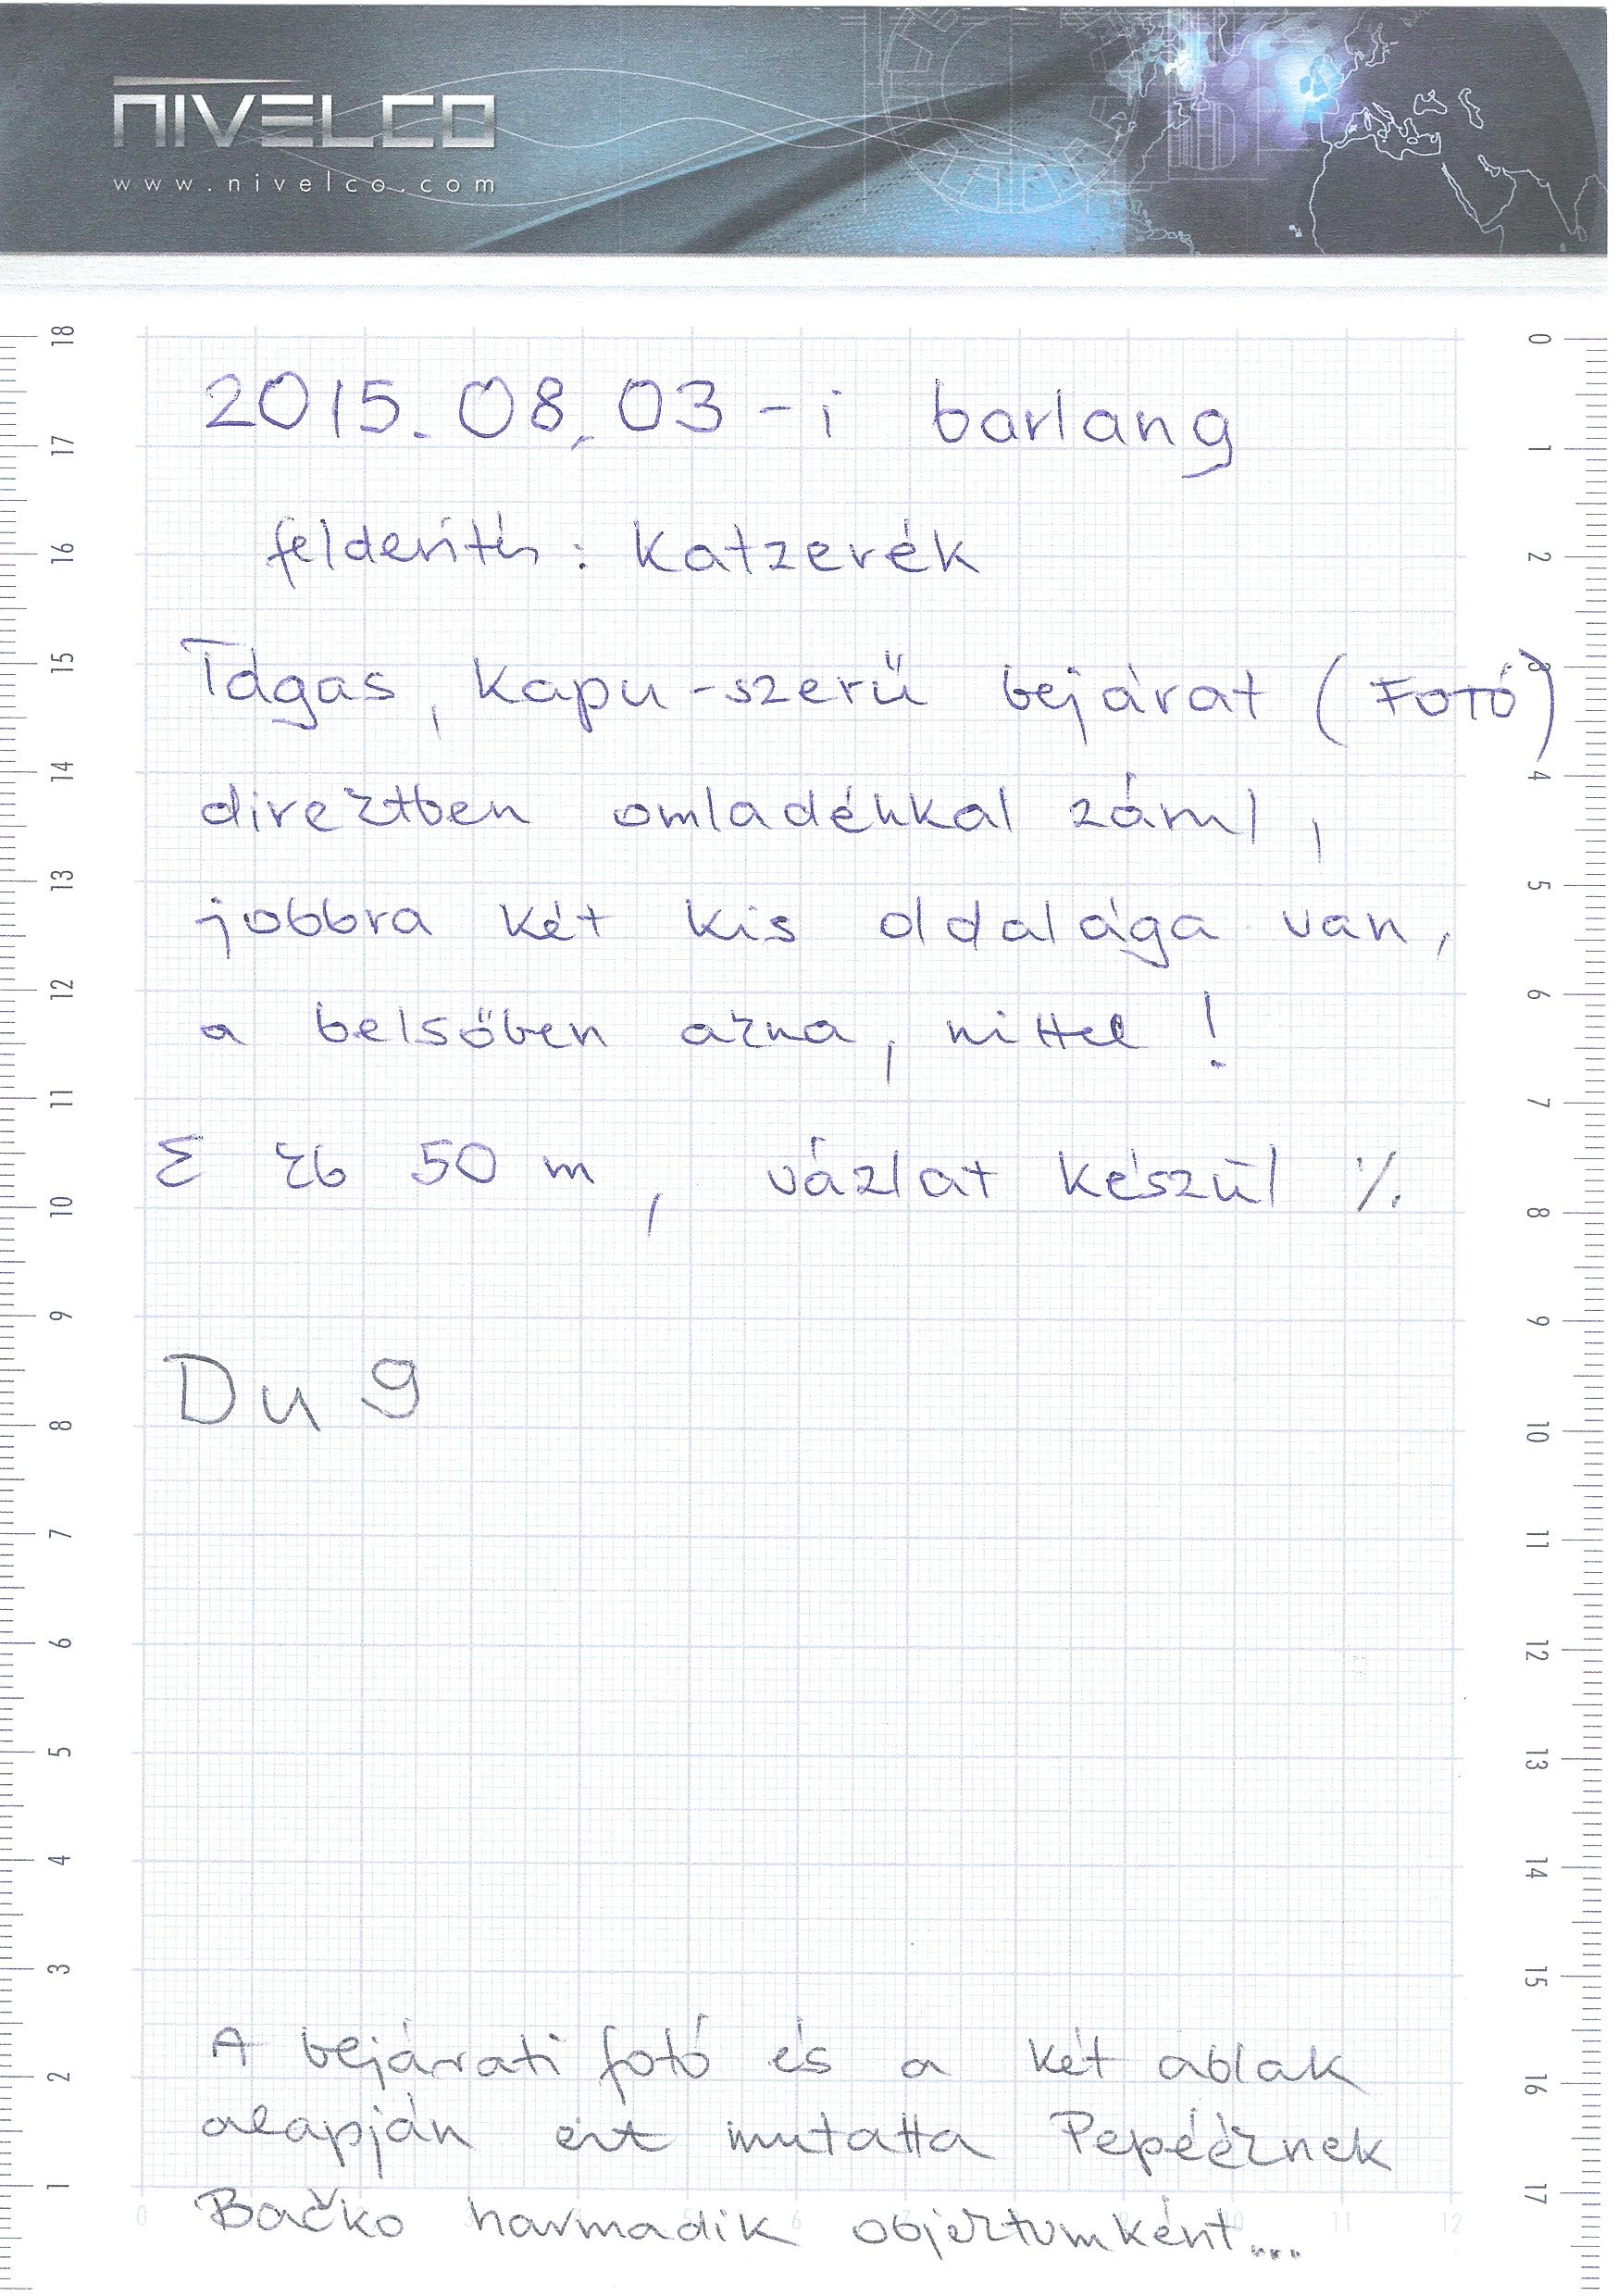 NIVELCO
www.nivelco.com
2015.08.03-i barlang
felderítés: Katzerék
Tágas, kapu-szerű bejárat (FOTÓ)
direktben omladékkal zárul,
jobbra két kis oldalága van,
a belsőben akna, nittel!
Σ kb 50 m, vázlat készül %.
Du 9
A bejárati fotó és a két ablak
alapján ezt mutatta Pepééknek
Bačko harmadik objektumként...
18 17 16 15 14 13 12 11 10 9 8 7 6 5 4 3 2 1
0 1 2 3 4 5 6 7 8 9 10 11 12 13 14 15 16 17